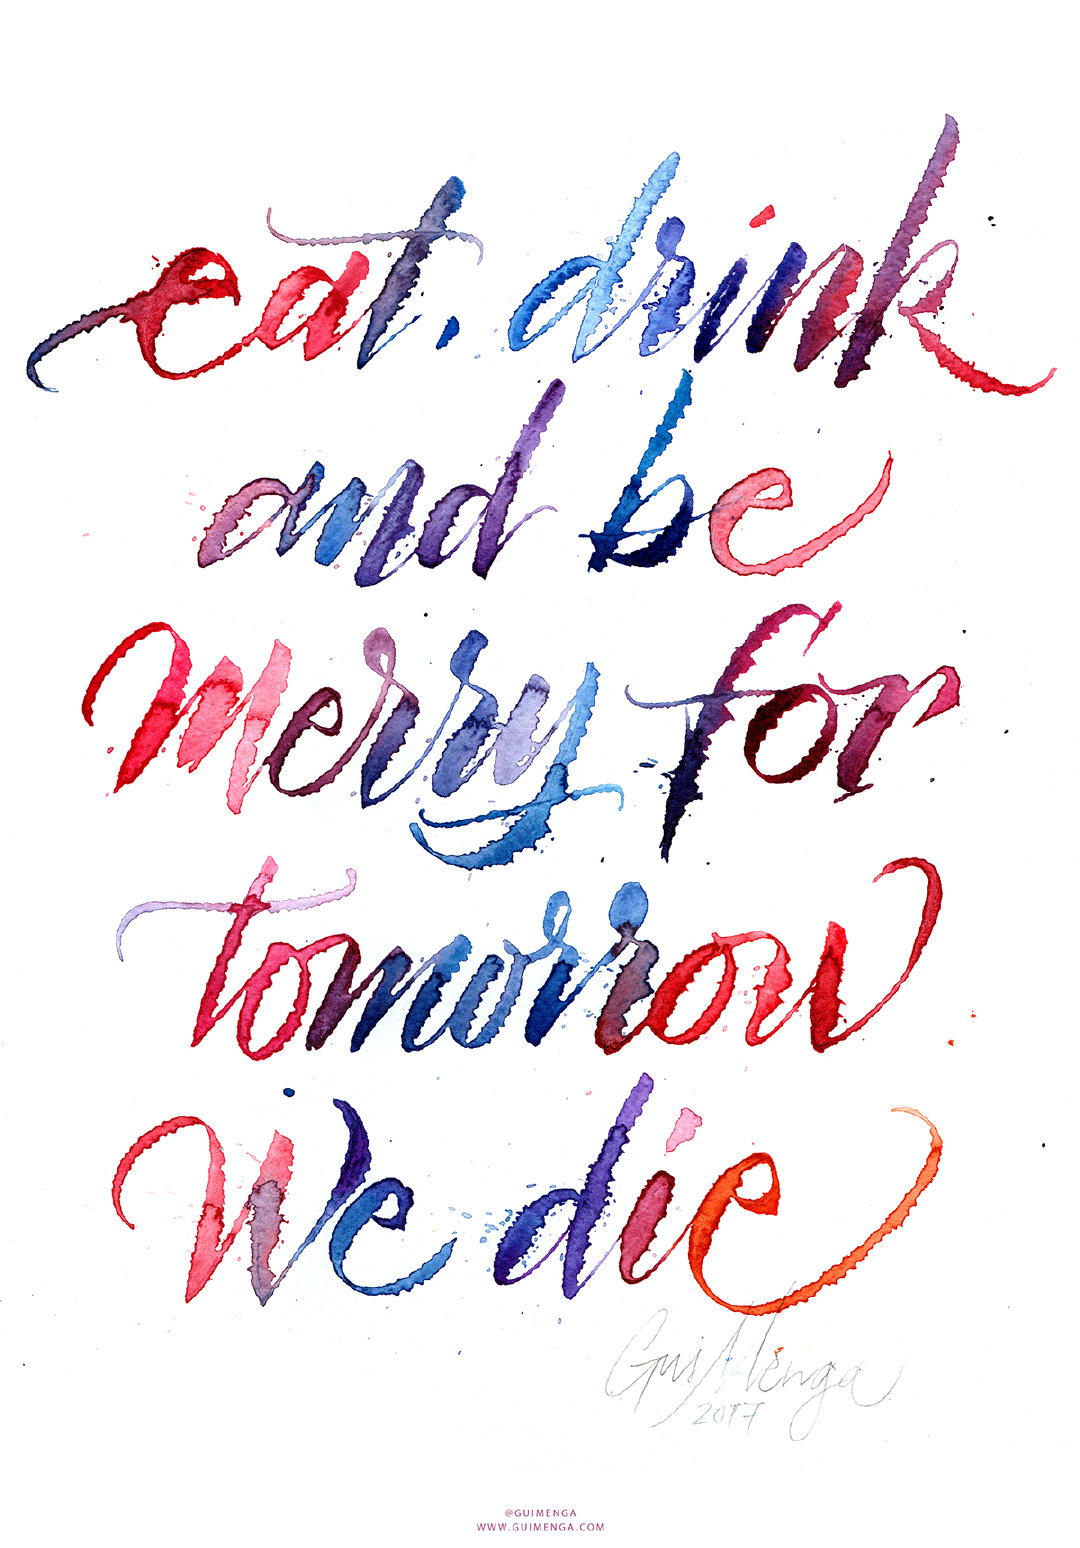 eat, drink
and be
merry for
tomorrow
We die
Gui Menga
2017
@GUIMENGA
WWW.GUIMENGA.COM